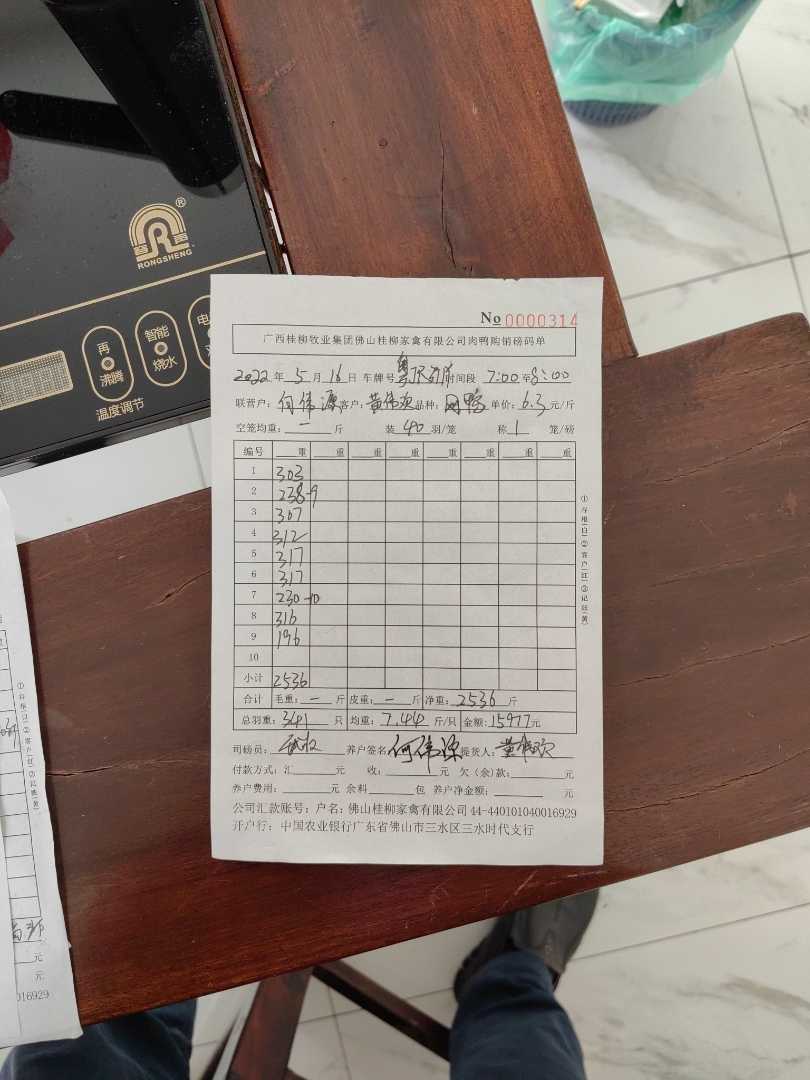 ®
容声
RONGSHENG
再
沸腾
智能
烧水
电
温度调节
№ 0000314
广西桂柳牧业集团佛山桂柳家禽有限公司肉鸭购销磅码单
2022 年 5 月 16 日 车牌号 粤 时间段 7:00至8:00
联营户：何伟源 客户：黄伟欢 品种： 鸭 单价：6.3 元/斤
空笼均重： 一 斤 装 40 羽/笼 称 1 笼/磅
编号 重 重 重 重 重 重 重 重
1 303
2 238-9
3 307
4 312
5 317
6 317
7 230-10
8 316
9 196
10
小计 2536
合计 毛重： 一 斤 皮重： 一 斤 净重：2536 斤
总羽重：341 只 均重：7.44 斤/只 金额：15977元
司磅员： 养户签名 何伟源 提货人：黄伟欢
付款方式：汇 元 收： 元 欠（余）款： 元
养户费用： 元 余料 包 养户净金额： 元
公司汇款账号：户名：佛山桂柳家禽有限公司 44-440101040016929
开户行：中国农业银行广东省佛山市三水区三水时代支行
①存根（白）②客户（红）③记账（黄）
元
元
016929